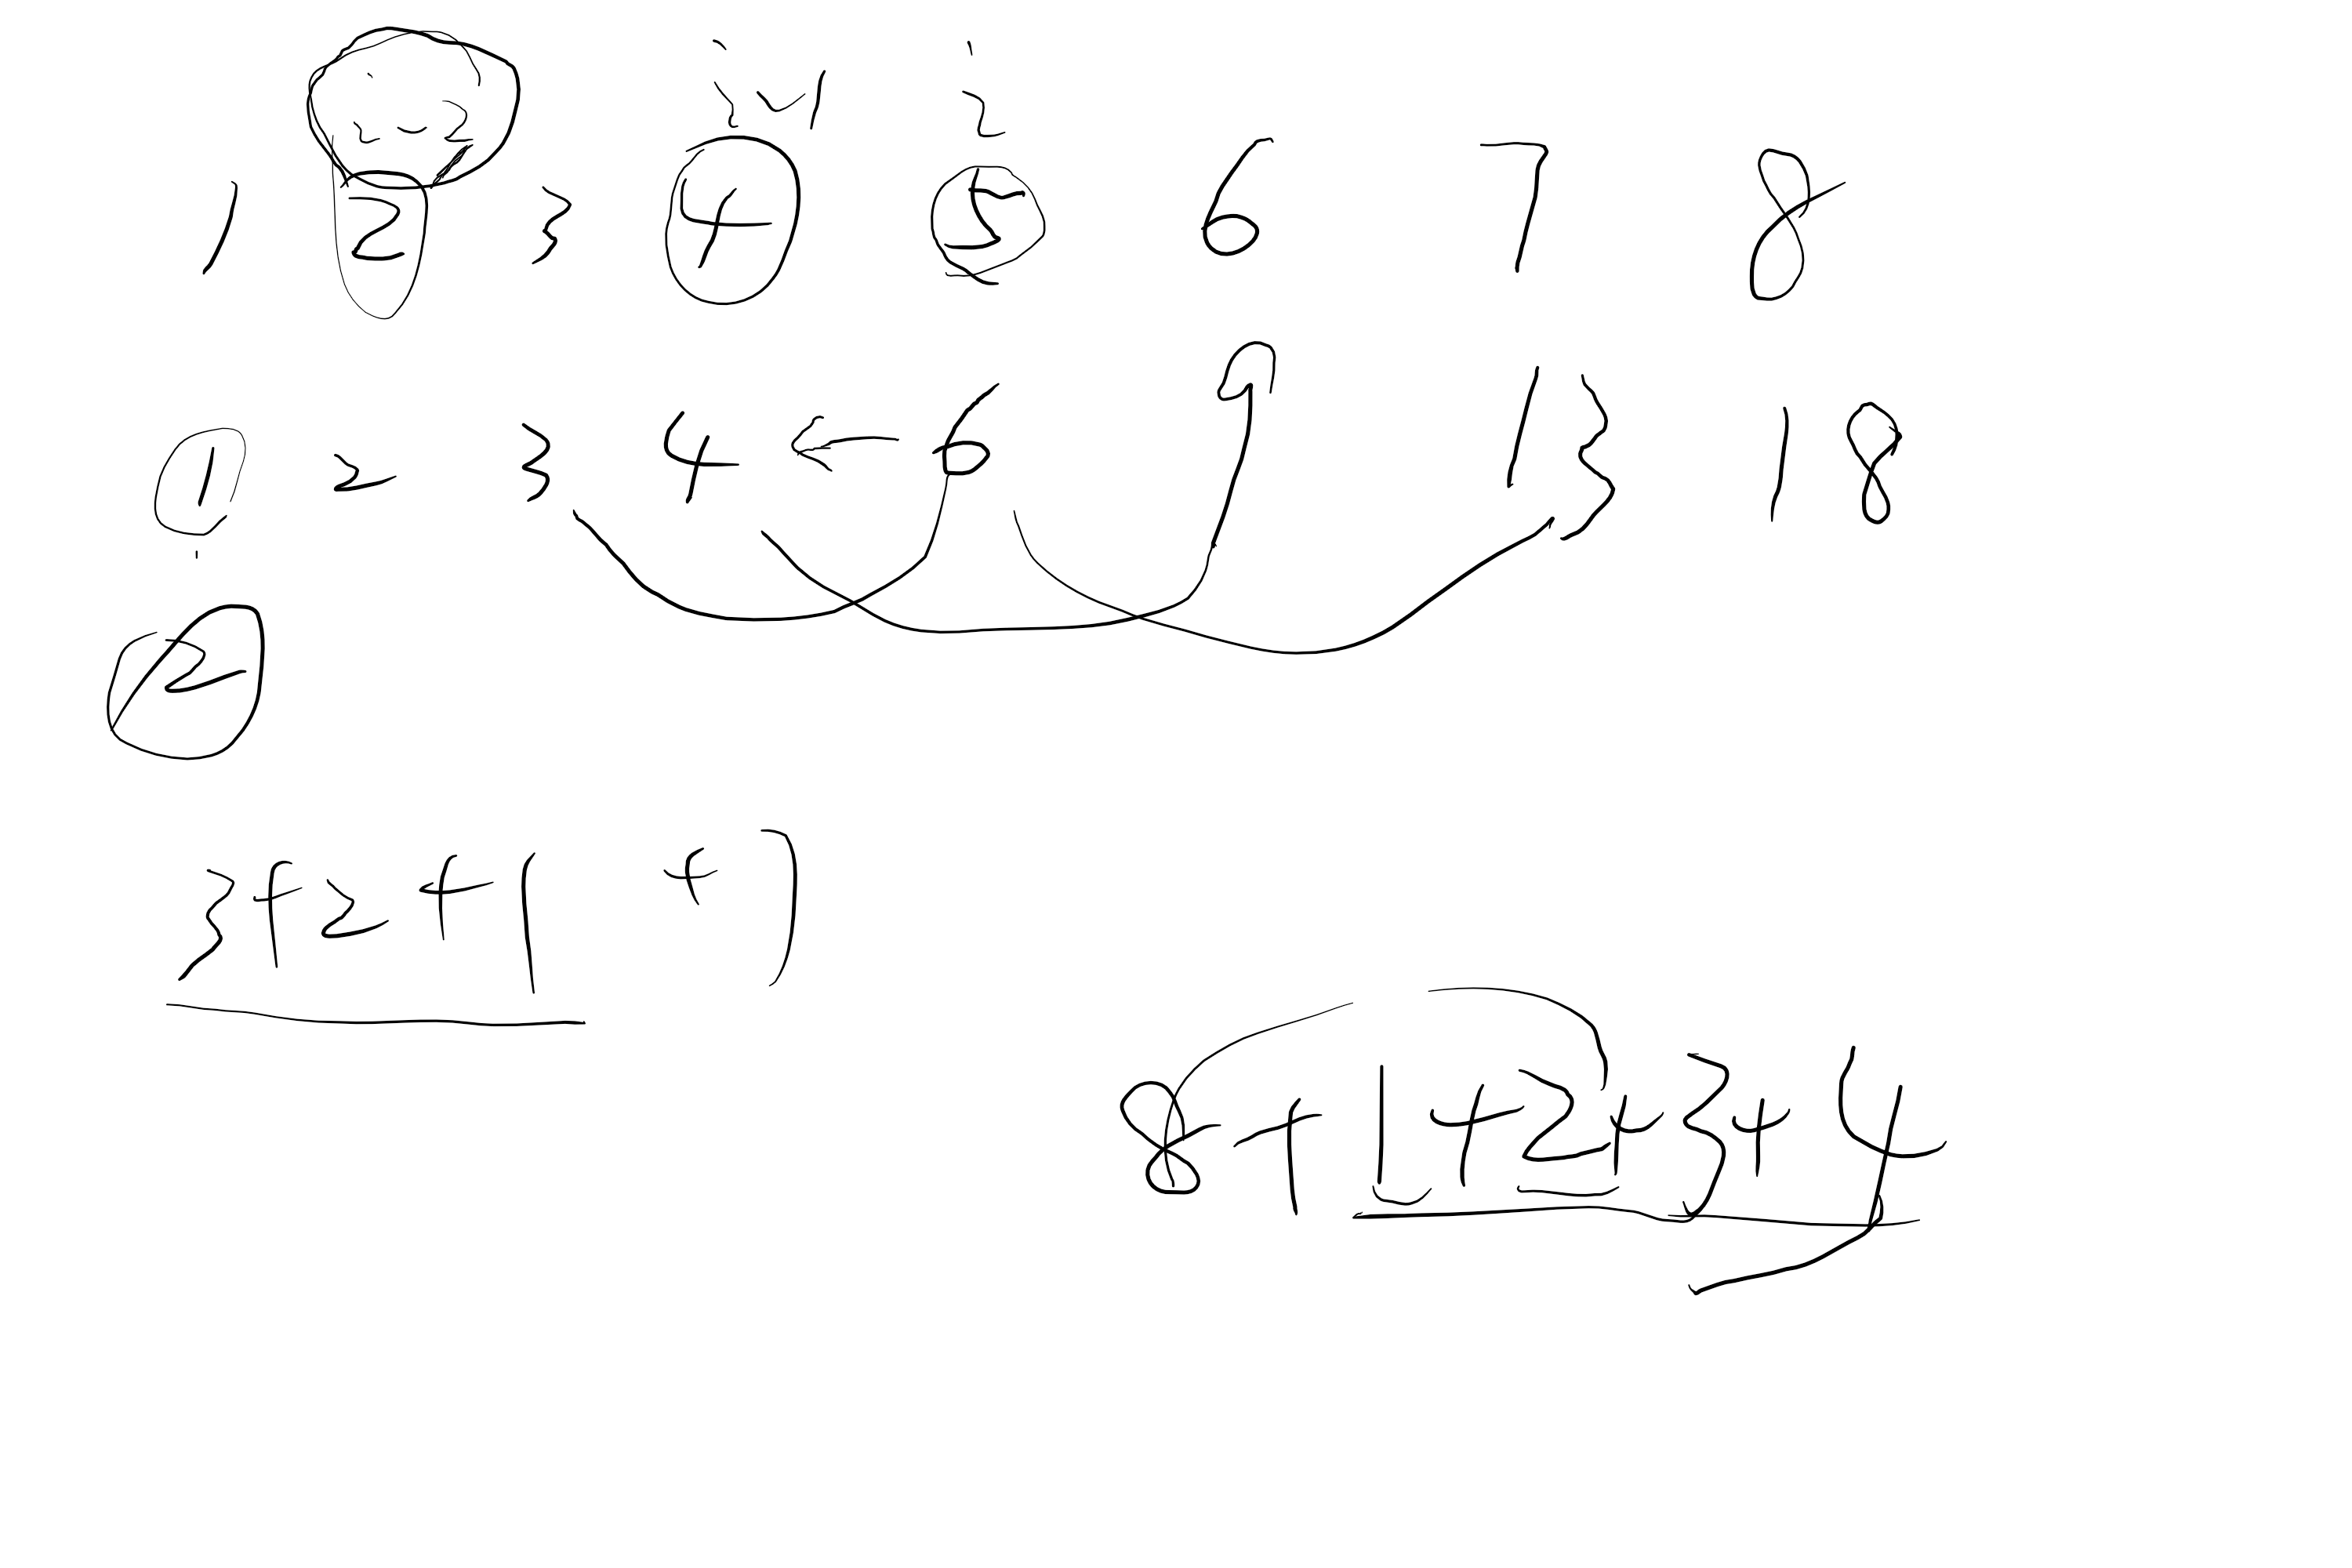 i-2 i-1 i
1 2 3 4 5 6 7 8
1 2 3 4 ← 6 9 13 18
2
3+2+1 + )
8+1+2+3+4